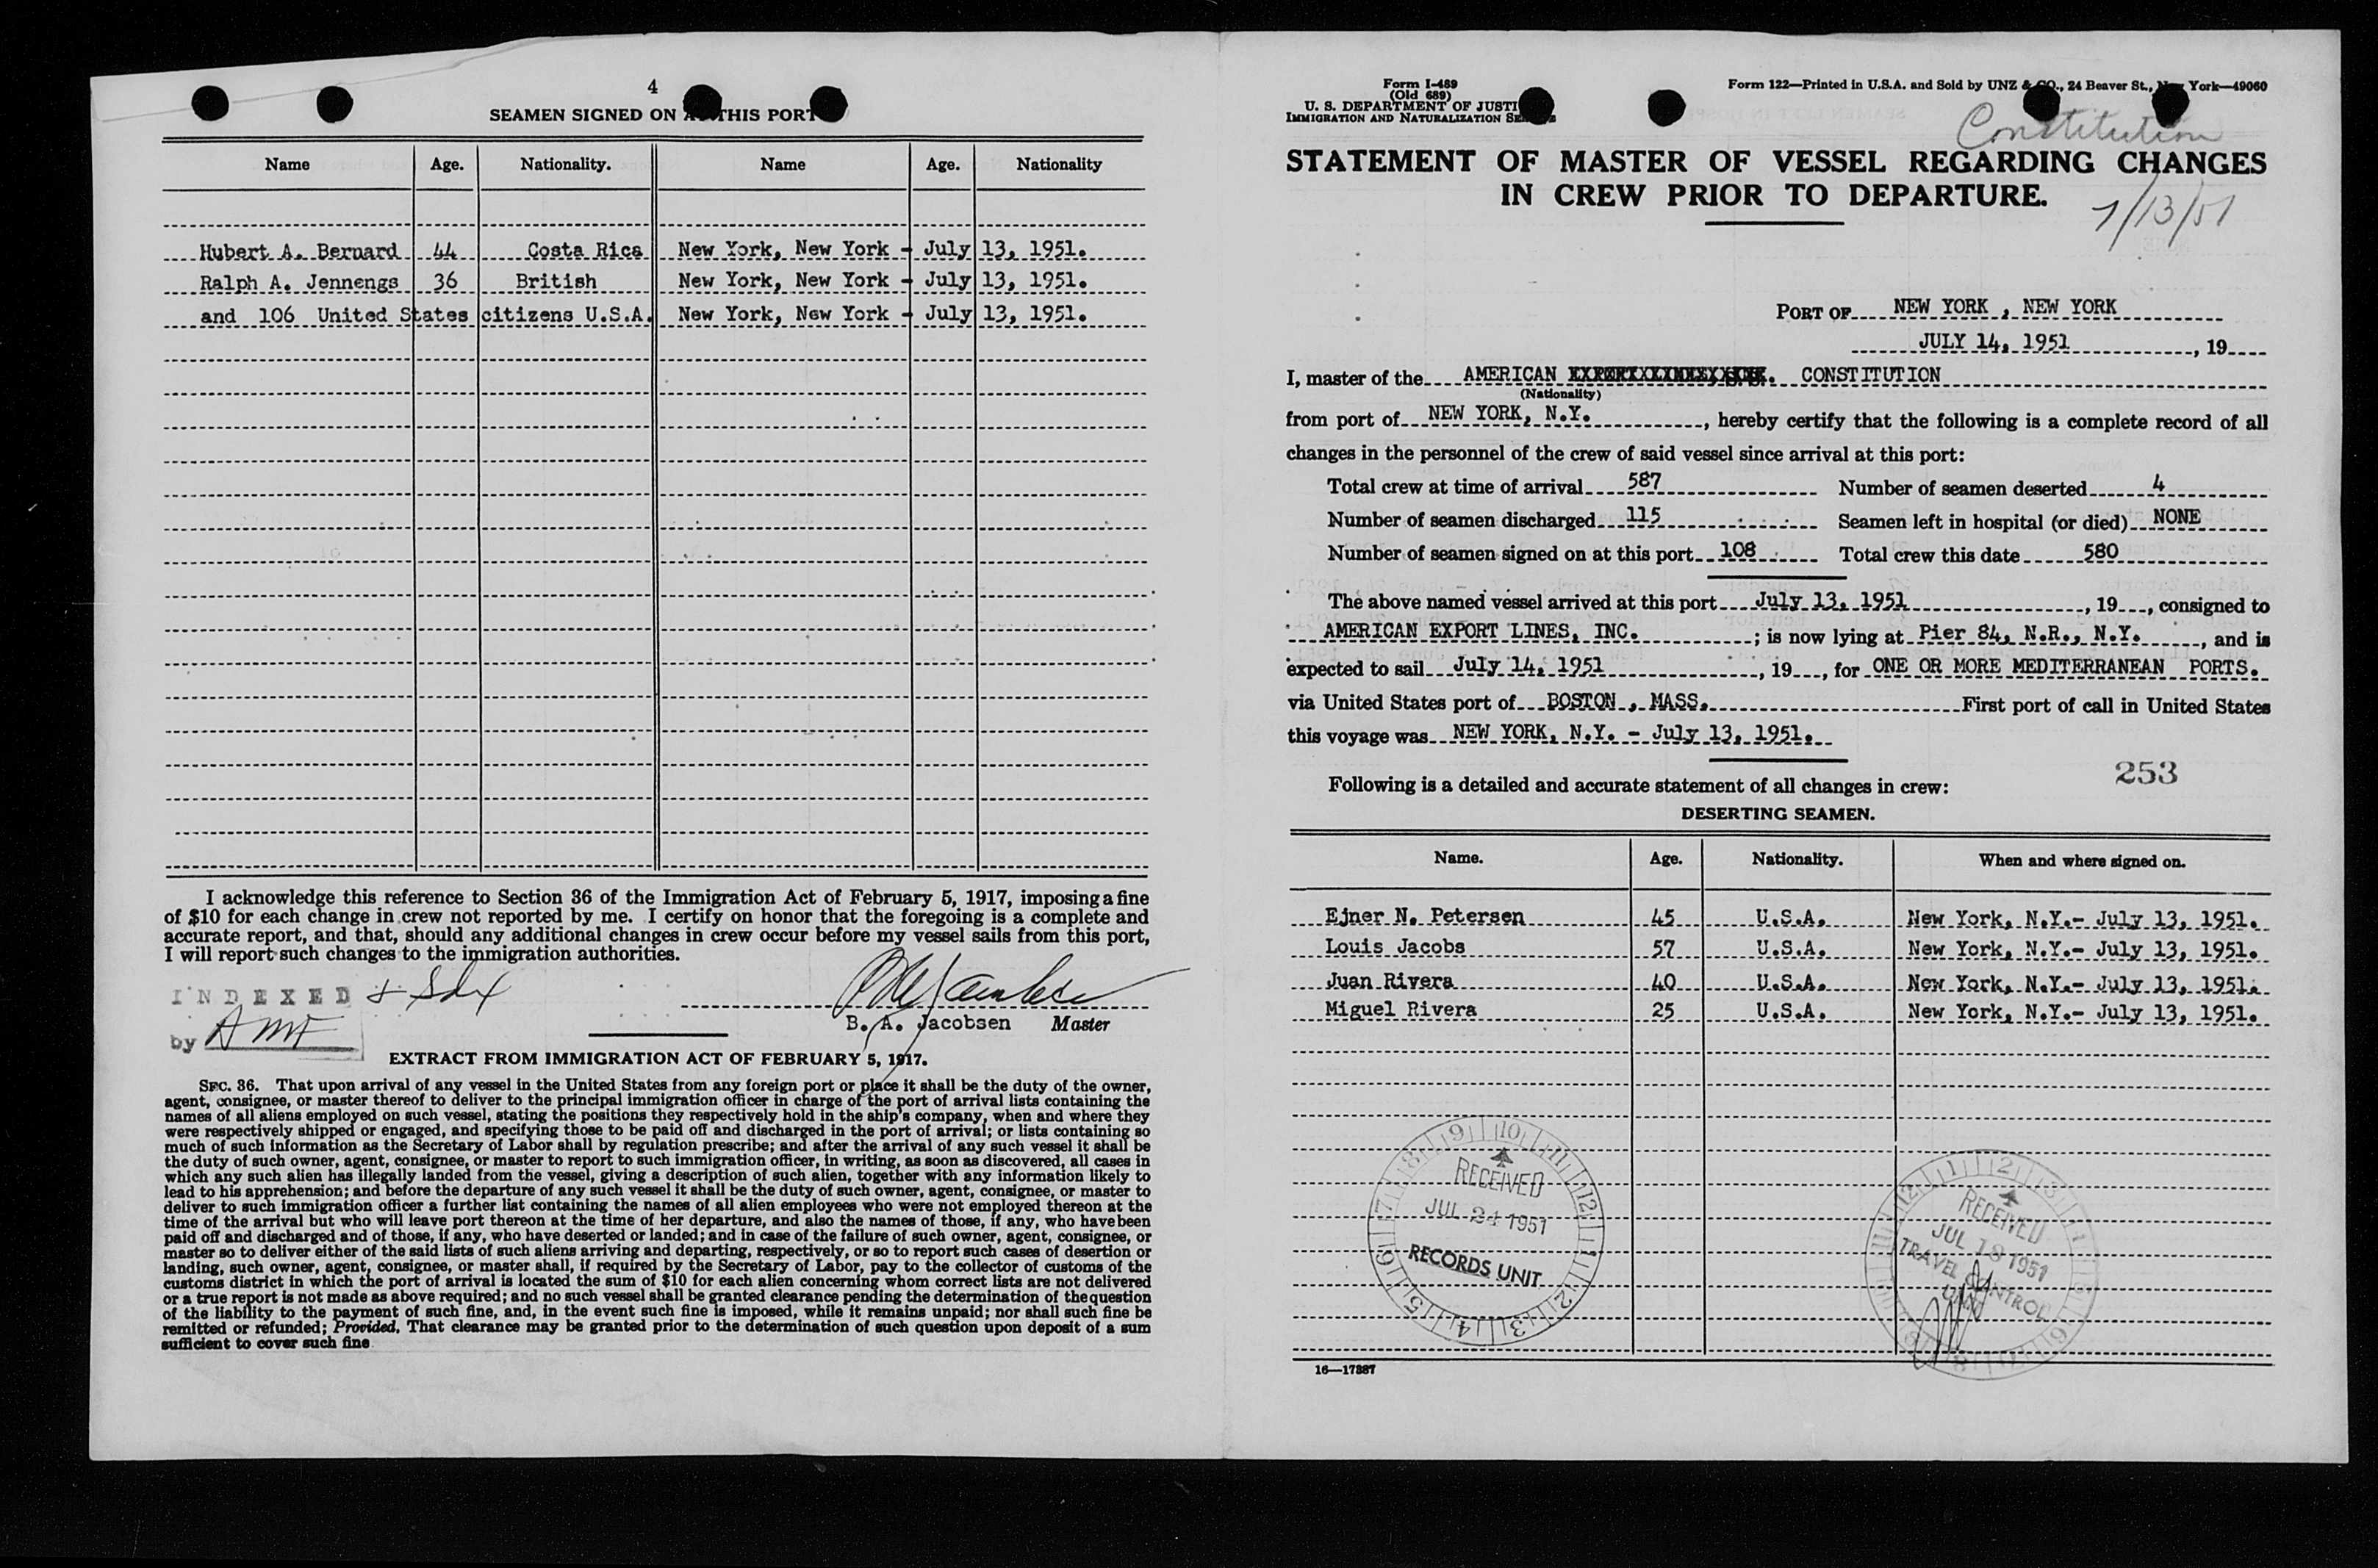 4
SEAMEN SIGNED ON THIS PORT
Name Age. Nationality. Name Age. Nationality
Hubert A. Bernard 44 Costa Rica New York, New York - July 13, 1951.
Ralph A. Jennengs 36 British New York, New York - July 13, 1951.
and 106 United States citizens U.S.A. New York, New York - July 13, 1951.
I acknowledge this reference to Section 36 of the Immigration Act of February 5, 1917, imposing a fine
of $10 for each change in crew not reported by me. I certify on honor that the foregoing is a complete and
accurate report, and that, should any additional changes in crew occur before my vessel sails from this port,
I will report such changes to the immigration authorities.
INDEXED
by AMF
B. A. Jacobsen Master
EXTRACT FROM IMMIGRATION ACT OF FEBRUARY 5, 1917.
SEC. 36. That upon arrival of any vessel in the United States from any foreign port or place it shall be the duty of the owner,
agent, consignee, or master thereof to deliver to the principal immigration officer in charge of the port of arrival lists containing the
names of all aliens employed on such vessel, stating the positions they respectively hold in the ship's company, when and where they
were respectively shipped or engaged, and specifying those to be paid off and discharged in the port of arrival; or lists containing so
much of such information as the Secretary of Labor shall by regulation prescribe; and after the arrival of any such vessel it shall be
the duty of such owner, agent, consignee, or master to report to such immigration officer, in writing, as soon as discovered, all cases in
which any such alien has illegally landed from the vessel, giving a description of such alien, together with any information likely to
lead to his apprehension; and before the departure of any such vessel it shall be the duty of such owner, agent, consignee, or master to
deliver to such immigration officer a further list containing the names of all alien employees who were not employed thereon at the
time of the arrival but who will leave port thereon at the time of her departure, and also the names of those, if any, who have been
paid off and discharged and of those, if any, who have deserted or landed; and in case of the failure of such owner, agent, consignee, or
master so to deliver either of the said lists of such aliens arriving and departing, respectively, or so to report such cases of desertion or
landing, such owner, agent, consignee, or master shall, if required by the Secretary of Labor, pay to the collector of customs of the
customs district in which the port of arrival is located the sum of $10 for each alien concerning whom correct lists are not delivered
or a true report is not made as above required; and no such vessel shall be granted clearance pending the determination of the question
of the liability to the payment of such fine, and, in the event such fine is imposed, while it remains unpaid; nor shall such fine be
remitted or refunded; Provided, That clearance may be granted prior to the determination of such question upon deposit of a sum
sufficient to cover such fine
Form I-489
(Old 689)
U. S. DEPARTMENT OF JUSTI
IMMIGRATION AND NATURALIZATION SE
Form 122—Printed in U.S.A. and Sold by UNZ & CO., 24 Beaver St., New York—49060
Constitution
STATEMENT OF MASTER OF VESSEL REGARDING CHANGES
IN CREW PRIOR TO DEPARTURE.
7/13/51
PORT OF NEW YORK , NEW YORK
JULY 14, 1951 , 19
I, master of the AMERICAN CONSTITUTION
(Nationality)
from port of NEW YORK, N.Y. , hereby certify that the following is a complete record of all
changes in the personnel of the crew of said vessel since arrival at this port:
Total crew at time of arrival 587 Number of seamen deserted 4
Number of seamen discharged 115 Seamen left in hospital (or died) NONE
Number of seamen signed on at this port 108 Total crew this date 580
The above named vessel arrived at this port July 13, 1951 , 19 , consigned to
AMERICAN EXPORT LINES, INC. ; is now lying at Pier 84, N.R., N.Y. , and is
expected to sail July 14, 1951 , 19 , for ONE OR MORE MEDITERRANEAN PORTS.
via United States port of BOSTON , MASS. First port of call in United States
this voyage was NEW YORK, N.Y. - July 13, 1951.
253
Following is a detailed and accurate statement of all changes in crew:
DESERTING SEAMEN.
Name. Age. Nationality. When and where signed on.
Ejner N. Petersen 45 U.S.A. New York, N.Y.- July 13, 1951.
Louis Jacobs 57 U.S.A. New York, N.Y.- July 13, 1951.
Juan Rivera 40 U.S.A. New York, N.Y.- July 13, 1951.
Miguel Rivera 25 U.S.A. New York, N.Y.- July 13, 1951.
RECEIVED
JUL 24 1951
RECORDS UNIT
RECEIVED
JUL 18 1951
TRAVEL CONTROL
UNIT
16—17387